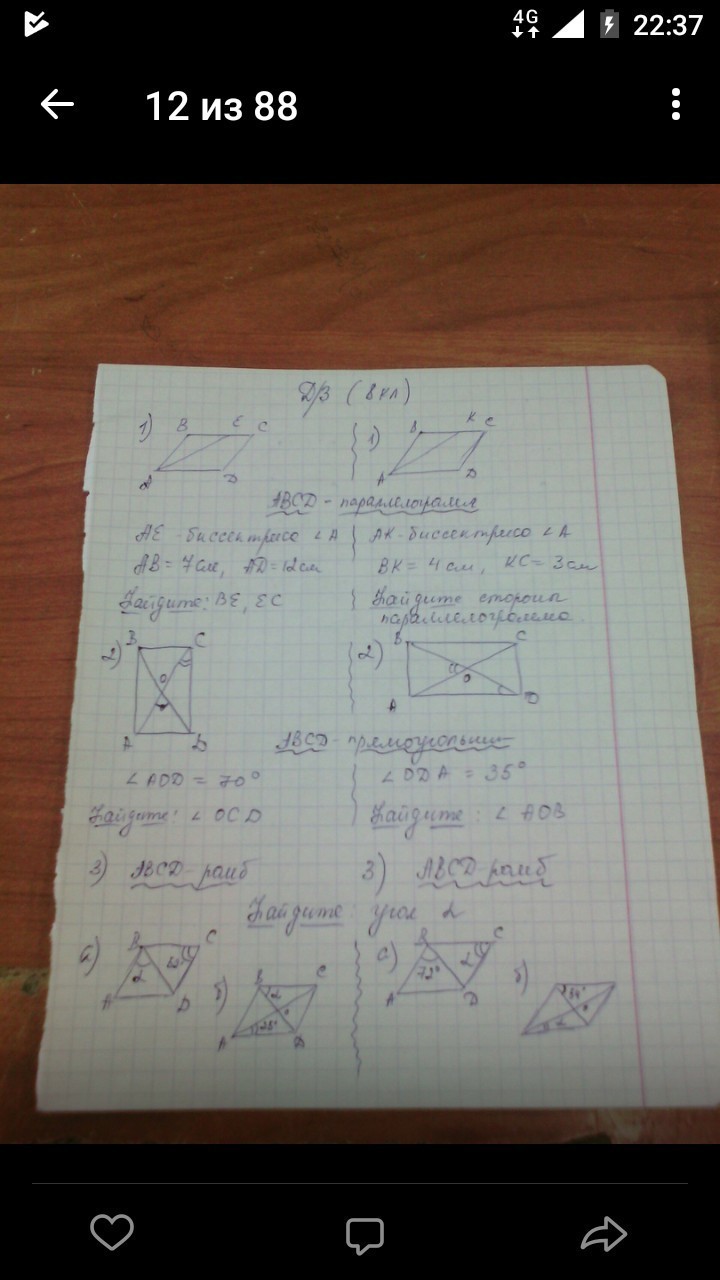 4G 22:37
12 из 88
Д/З (8 кл)
1) B E C A D
1) B K C A D
ABCD - параллелограмм
AE - биссектриса ∠A
AB = 7 см, AD = 12 см
Найдите: BE, EC
AK - биссектриса ∠A
BK = 4 см, KC = 3 см
Найдите стороны
параллелограмма.
2) B C O A D
2) B C O A D
ABCD - прямоугольник
∠AOD = 70°
Найдите: ∠OCD
∠ODA = 35°
Найдите: ∠AOB
3) ABCD - ромб
3) ABCD - ромб
Найдите: угол α
а) B C α A D
б) B C α 25° A D
а) B C 72° α A D
б) α